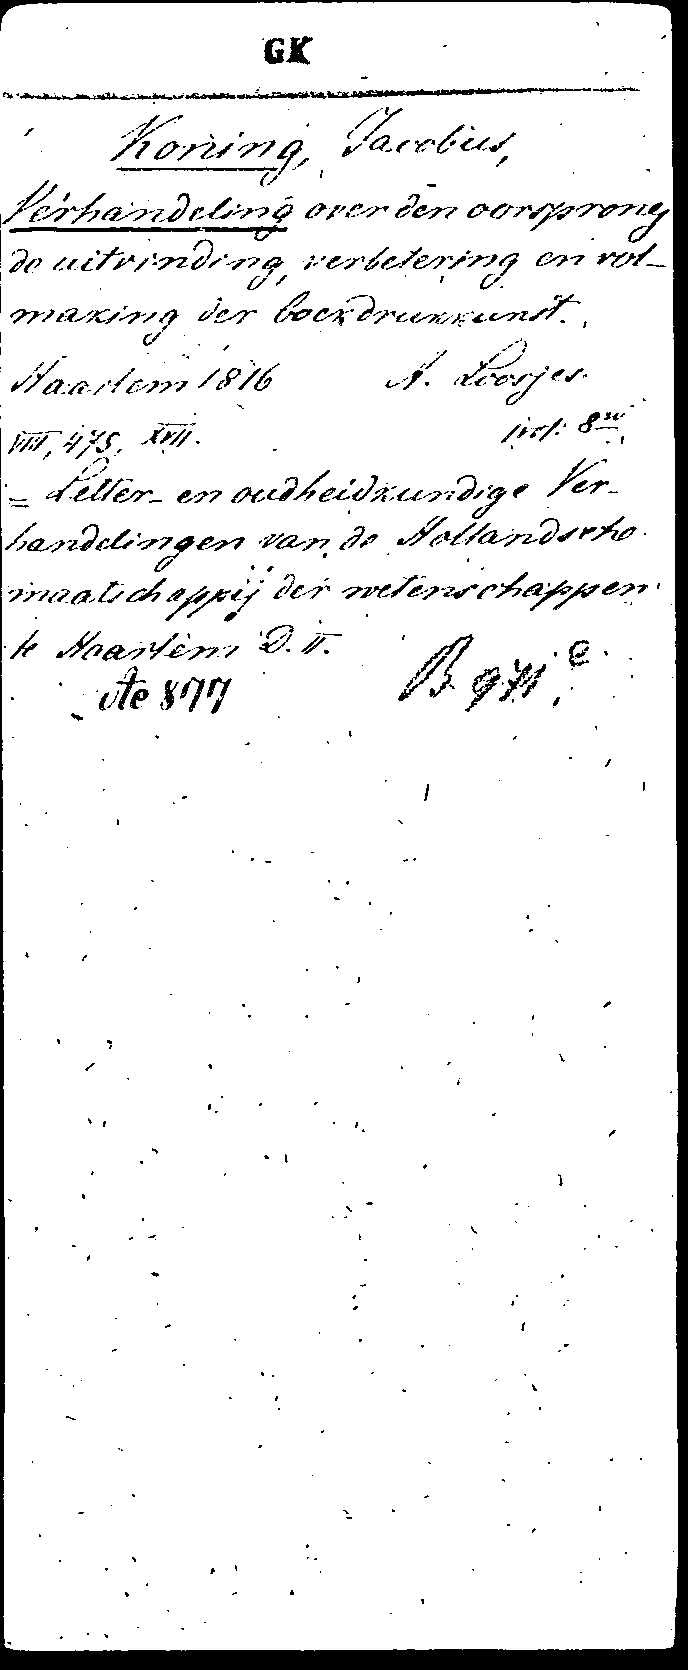 GK
Koning, Jacobus,
Verhandeling over den oorsprong
de uitvinding, verbetering en vol-
making der boekdrukkunst.
Haarlem 1816 A. Loosjes.
VIII, 475, XVII. 8vo.
= Letter- en oudheidkundige Ver-
handelingen van de Hollandsche
maatschappij der wetenschappen
te Haarlem D. II.
Ae 877 B 971 e